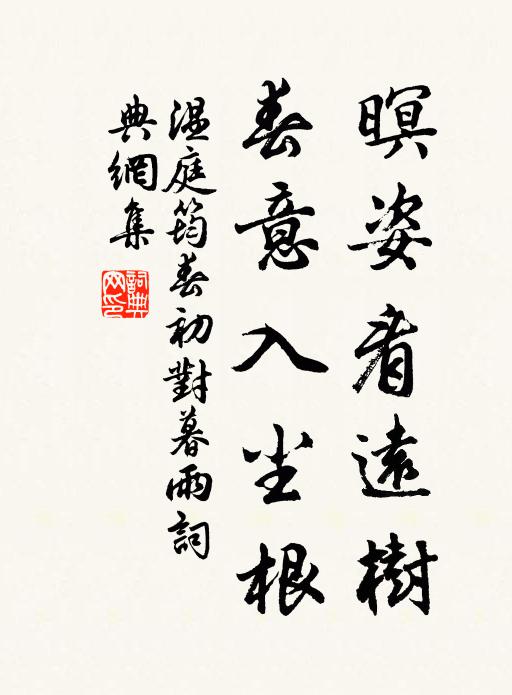 暝姿看遠樹
春意入尘根
温庭筠春初對暮雨詞
典網集
詞典
网印